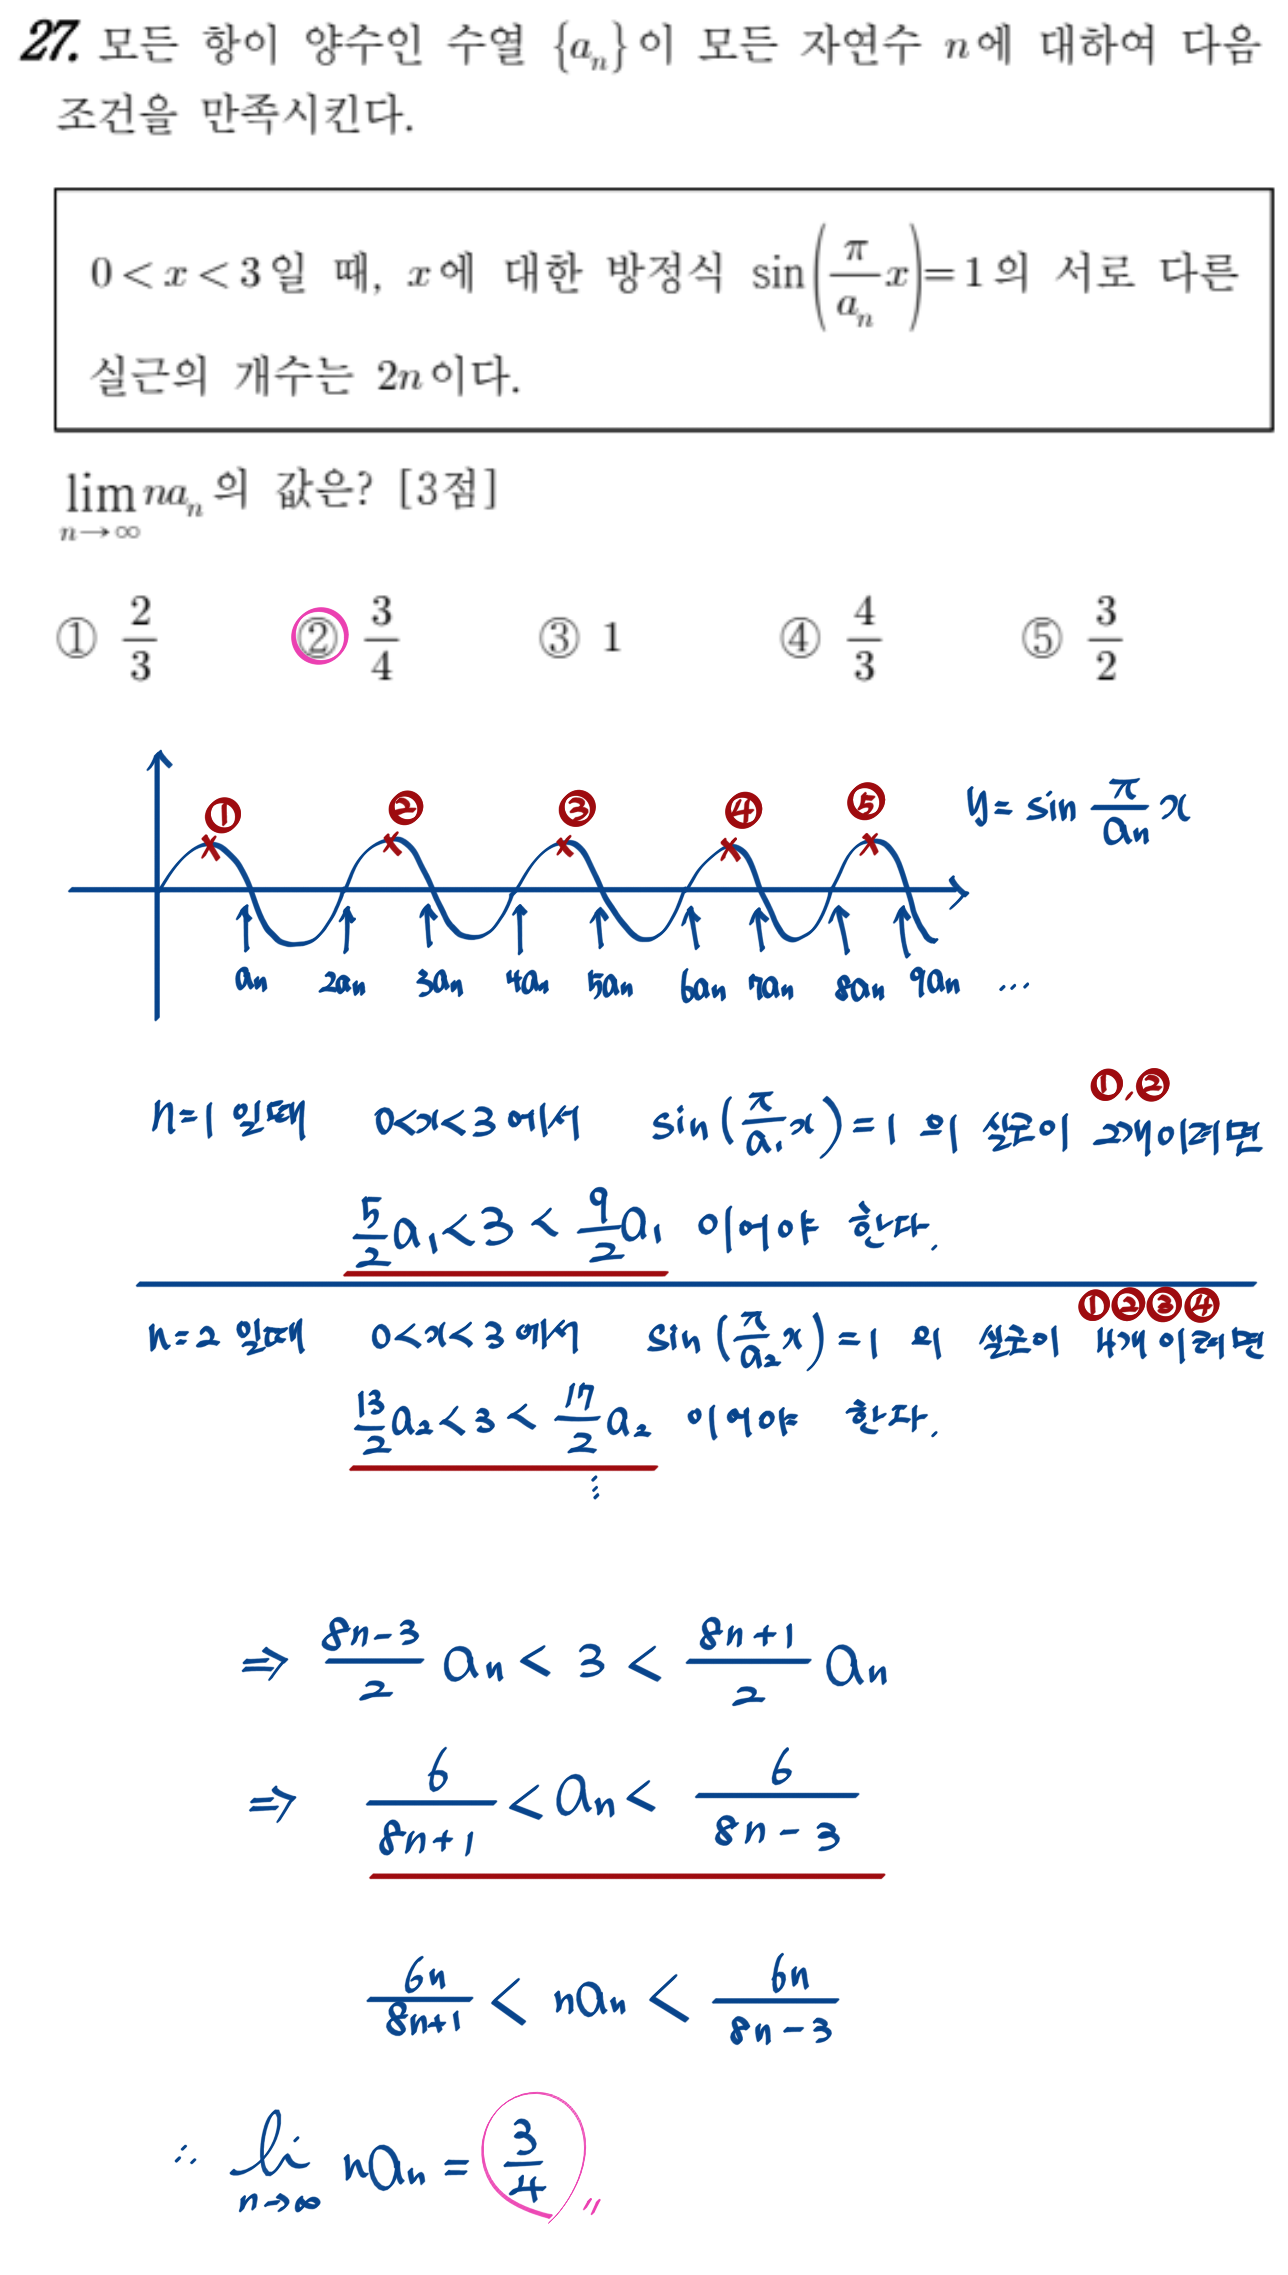 27. 모든 항이 양수인 수열 {aₙ}이 모든 자연수 n에 대하여 다음
조건을 만족시킨다.
0 < x < 3일 때, x에 대한 방정식 sin(π/aₙ x)=1의 서로 다른
실근의 개수는 2n이다.
lim n→∞ naₙ의 값은? [3점]
① 2/3 ② 3/4 ③ 1 ④ 4/3 ⑤ 3/2
① ② ③ ④ ⑤ y= sin π/aₙ x
aₙ 2aₙ 3aₙ 4aₙ 5aₙ 6aₙ 7aₙ 8aₙ 9aₙ ...
①,②
n=1 일때 0<x<3 에서 sin(π/a₁ x)=1 의 실근이 2개이려면
5/2 a₁ < 3 < 9/2 a₁ 이어야 한다.
①②③④
n=2 일때 0<x<3 에서 sin(π/a₂ x)=1 의 실근이 4개 이려면
13/2 a₂ < 3 < 17/2 a₂ 이어야 한다.
⋮
⇒ (8n-3)/2 aₙ < 3 < (8n+1)/2 aₙ
⇒ 6/(8n+1) < aₙ < 6/(8n-3)
6n/(8n+1) < naₙ < 6n/(8n-3)
∴ lim n→∞ naₙ = 3/4 〃